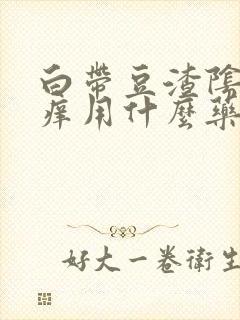 白帶豆渣陰
痒用什麼藥
好大一卷衛生